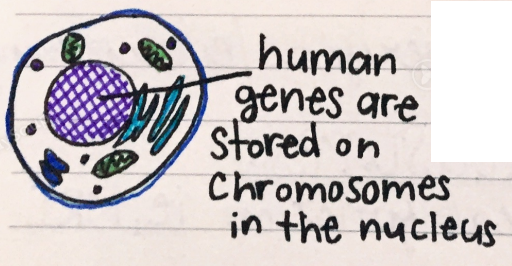 human
genes are
stored on
Chromosomes
in the nucleus